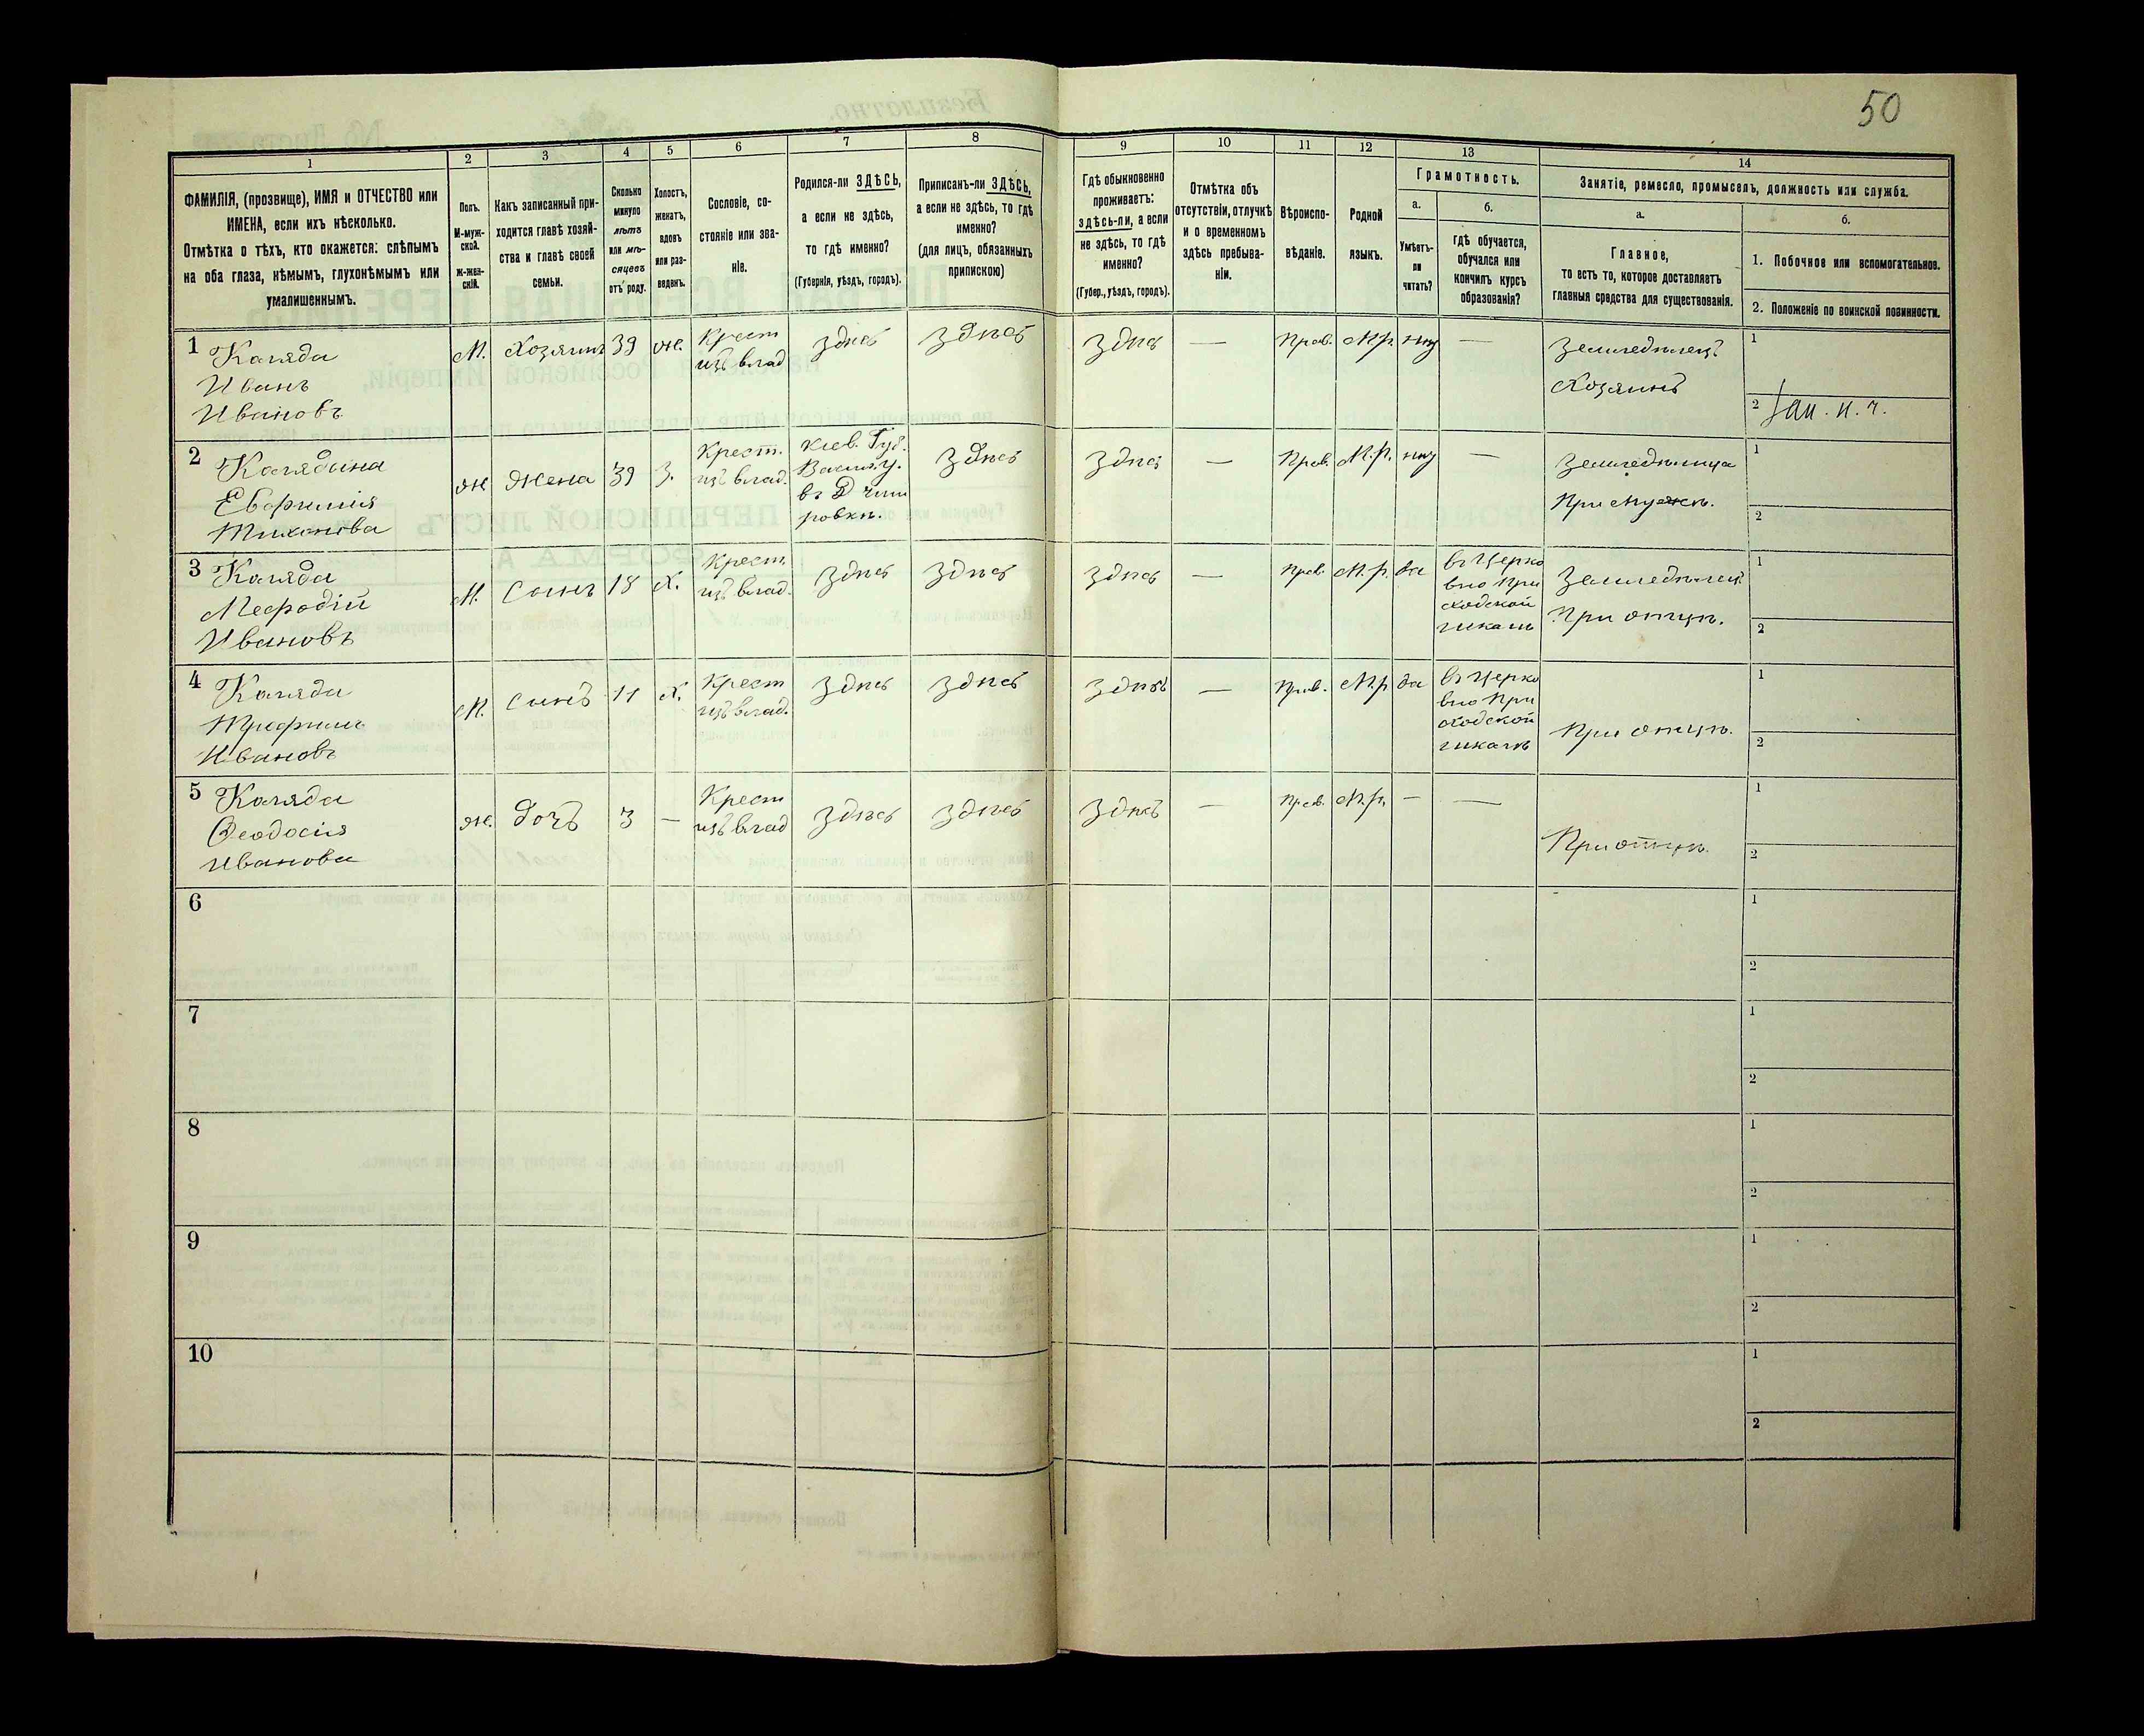 50
1 2 3 4 5 6 7 8 9 10 11 12 13 14
ФАМИЛІЯ, (прозвище), ИМЯ и ОТЧЕСТВО или
ИМЕНА, если ихъ нѣсколько.
Отмѣтка о тѣхъ, кто окажется: слѣпымъ
на оба глаза, нѣмымъ, глухонѣмымъ или
умалишеннымъ.
Полъ.
М-муж-
ской.
Ж-жен-
скій.
Какъ записанный при-
ходится главѣ хозяй-
ства и главѣ своей
семьи.
Сколько
минуло
лѣтъ
или мѣ-
сяцевъ
отъ роду.
Холостъ,
женатъ,
вдовъ
или раз-
веденъ.
Сословіе, со-
стояніе или зва-
ніе.
Родился-ли ЗДѢСЬ,
а если не здѣсь,
то гдѣ именно?
(Губернія, уѣздъ, городъ).
Приписанъ-ли ЗДѢСЬ,
а если не здѣсь, то гдѣ
именно?
(для лицъ, обязанныхъ
припискою)
Гдѣ обыкновенно
проживаетъ:
здѣсь-ли, а если
не здѣсь, то гдѣ
именно?
(Губер., уѣздъ, городъ).
Отмѣтка объ
отсутствіи, отлучкѣ
и о временномъ
здѣсь пребыва-
ніи.
Вѣроиспо-
вѣданіе.
Родной
языкъ.
Грамотность.
а.
Умѣетъ-
ли
читать?
б.
Гдѣ обучается,
обучался или
кончилъ курсъ
образованія?
Занятіе, ремесло, промыселъ, должность или служба.
а.
Главное,
то есть то, которое доставляетъ
главныя средства для существованія.
б.
1. Побочное или вспомогательное.
2. Положеніе по воинской повинности.
1 Каляда
Иванъ
Ивановъ
М. Хозяинъ 39 ж.
Крест
изъ влад
здѣсь здѣсь здѣсь — Прав. М.р. нѣт —
Земледѣлецъ
Хозяинъ
1
2
2 Калядина
Евфимія
Тихонова
ж Жена 39 з.
Крест.
изъ влад.
Кіев. Губ.
Васил. у.
здѣсь здѣсь — Прав. М.р. нѣт —
Земледѣлица
При мужѣ.
1
2
3 Каляда
Мефодій
Ивановъ
М. Сынъ 18 х.
Крест.
изъ влад.
здѣсь здѣсь здѣсь — Прав. М.р. да
въ Церко
вно При
ходской
школѣ
Земледѣлецъ
При отцѣ.
1
2
4 Каляда
Трофимъ
Ивановъ
М. Сынъ 11 х.
Крест
изъ влад.
здѣсь здѣсь здѣсь — Прав. М.р да
въ Церко
вно При
ходской
школѣ
При отцѣ.
1
2
5 Каляда
Ѳеодосія
Иванова
ж. Дочь 3 —
Крест
изъ влад
здѣсь здѣсь здѣсь — Прав. М.р. — —
При отцѣ.
1
2
6
1
2
7
1
2
8
1
2
9
1
2
10
1
2